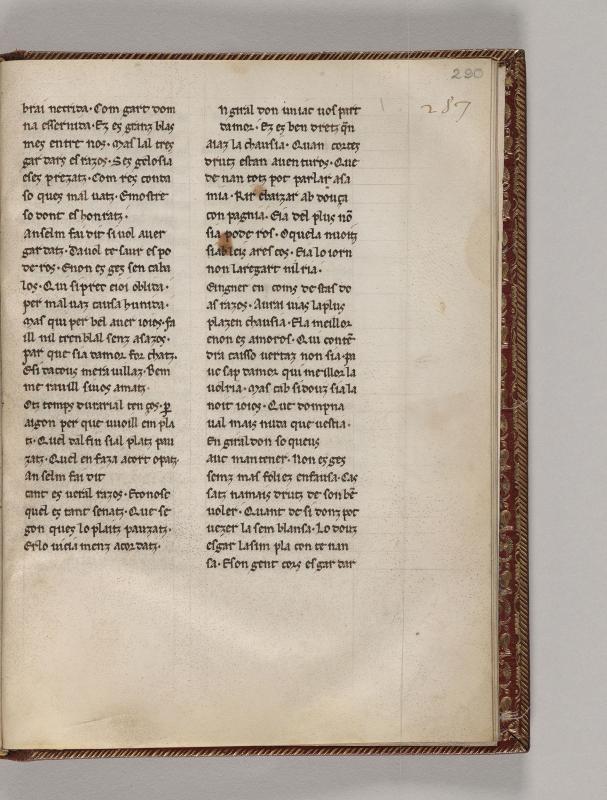 290
287
brai netrida· Com gart dom
na essernida· Ez es granz blas
mes entre nos· Mas lal tres
gar dars es razos· Ses gelosia
eses prezatz· Com res conta
so ques mal uatz· Emostre
so dont es honratz·
Anselm fai dit si uol auer
gar datz· Dauol te saur es po
de ros· Enon es ges sen caba
los· Qui si pret e ioi oblida·
per mal uaz causa hunida·
Mas qui per bel auer ioios fa
ill nil tren blal senz asazos·
par que sia damor for chatz·
Esi dacous mera uillaz· Bem
me rauill siuos amatz·
Otz temps durarial ten ços· p
aigon per que uuoill em pla
tz· Quel dal fin sial platz pau
zatz· Quel en faza acort opatz·
An selm fai dit
tant es uerai razos· Econosc
quel es tant senatz· Que se
gon ques lo plaitz pauzatz·
Erlo uicia menz acordatz·
N giral don un iac uos part
damor· Ez es ben dretz qn
aiaz la chausia· Quan cortes
drutz estan auentures· Que
de nan totz pot parlar asa
mia· Rir ebaizar ab douça
con pagnia· Eia del plus no
sia pode ros· O quela nuoitz
siab leis ares cos· Eia lo iorn
non laregart nil ria·
Eingner en coms de stas do
as razos· Aurai uias laplus
plazen chausia· Ela meillor
enon es amoros· Qui conte
dra causso uertaz non sia· pa
uc sap damor qui meillor la
uolria· Mas cab sidouz siala
noit ioios· Que dompna
ual mais nuda que uestia·
En giral don so queus
auc mantener· Non es ges
senz mas foliez enfansa· Cas
satz namais drutz de son be
uoler· Quant de si donz pot
uezer la sem blansa· Lo douz
esgar lasim pla con te nan
sa· Eson gent cors es gar dar